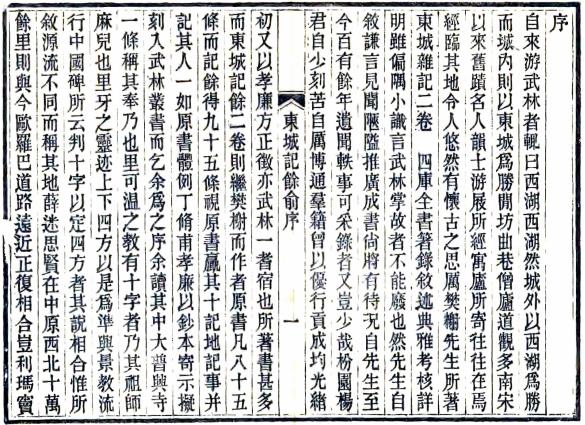 序
自來游武林者輒曰西湖西湖然城外以西湖爲勝
而城內則以東城爲勝閒坊曲巷僧廬道觀多南宋
以來舊蹟名人韻士游展所經寓廬所寄往往在焉
經臨其地令人悠然有懷古之思厲樊榭先生所著
東城雜記二卷 四庫全書著錄敘述典雅考核詳
明雖偏隅小識言武林掌故者不能廢也然先生自
敘謙言見聞陿隘推廣成書尙將有待況自先生至
今百有餘年遺聞軼事可采錄者又豈少哉枌園楊
君自少刻苦自厲博通羣籍曾以優行貢成均光緒
東城記餘俞序 一
初又以孝廉方正徵亦武林一耆宿也所著書甚多
而東城記餘二卷則繼樊榭而作者原書凡八十五
條而記餘得九十五條視原書贏其十記地記事并
記其人一如原書體例丁脩甫孝廉以鈔本寄示擬
刻入武林叢書而乞余爲之序余讀其中大普興寺
一條稱其奉乃也里可溫之教有十字者乃其祖師
麻兒也里牙之靈迹上下四方以是爲準與景教流
行中國碑所云判十字以定四方者其說相合惟所
敘源流不同而稱其地薛迷思賢在中原西北十萬
餘里則與今歐羅巴道路遠近正復相合豈利瑪竇